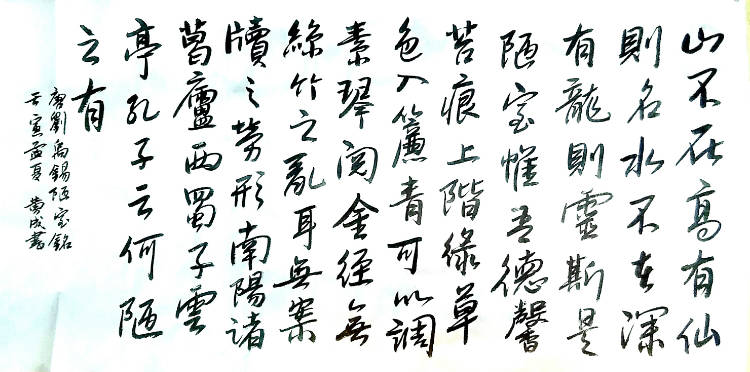 山不在高有仙
則名水不在深
有龍則靈斯是
陋室惟吾德馨
苔痕上階綠草
色入簾青可以調
素琴閱金經無
絲竹之亂耳無案
牘之勞形南陽諸
葛廬西蜀子雲
亭孔子云何陋
之有
唐劉禹錫陋室銘
壬寅孟夏 黄成書